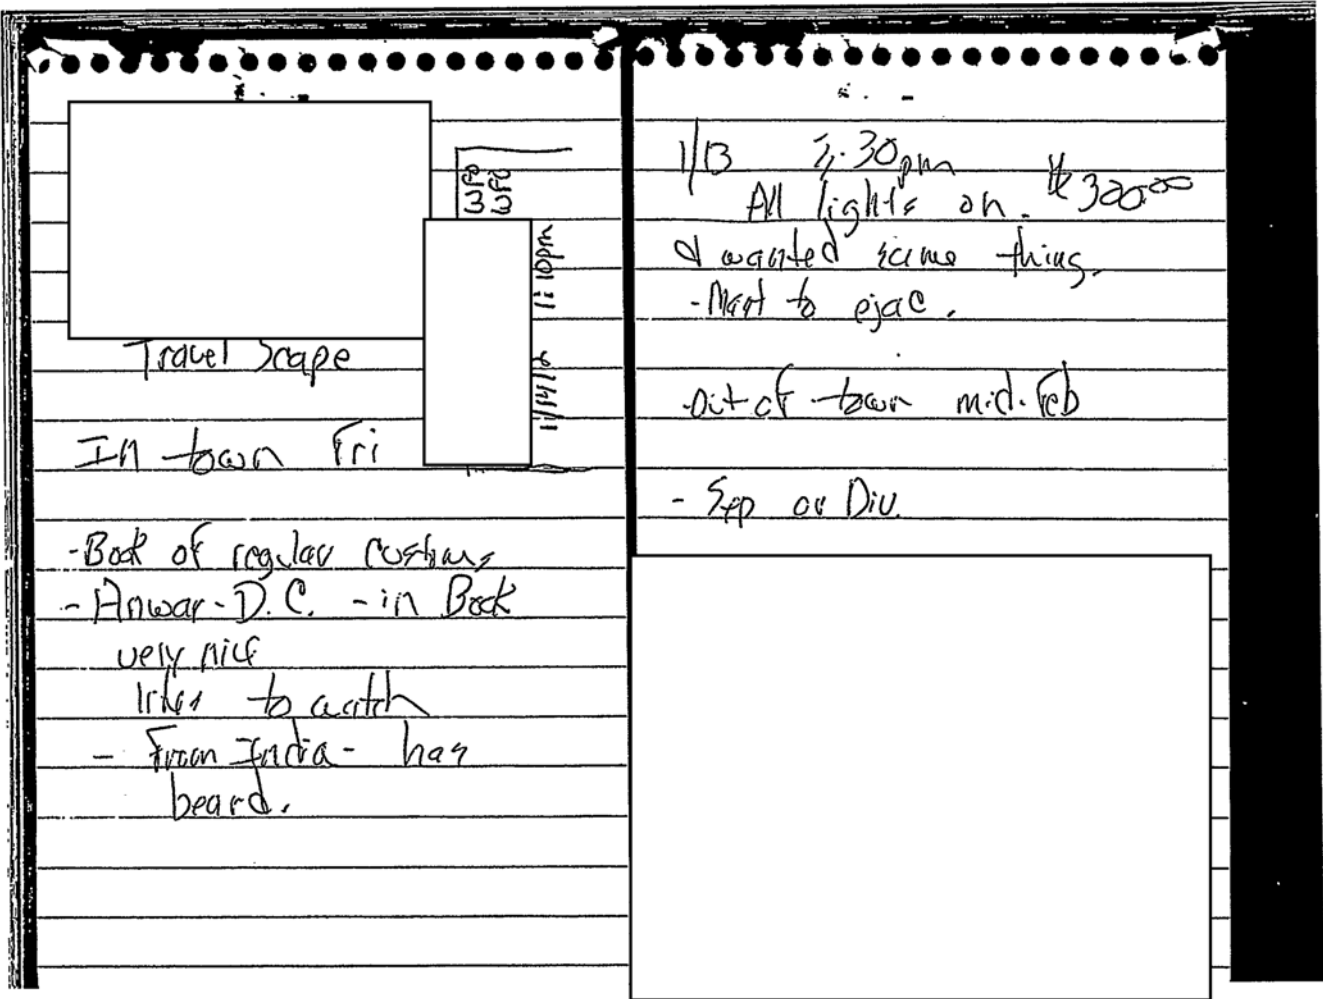 Travel Scape
In town Fri
-Book of regular customs
-Anwar-D.C. -in Book
very nice
likes to watch
- From India- has
beard.
1:10pm
1/13 :30pm
$300.00
All lights on.
wanted same thing.
- to ejac.
-out of town mid-Feb
- Sep or Div.